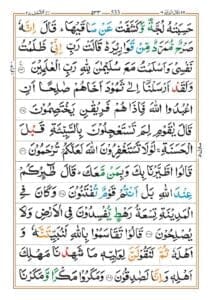 حَسِبَتْهُ لُجَّةً وَّكَشَفَتْ عَنْ سَاقَيْهَا ؕ قَالَ اِنَّهٗ
صَرْحٌ مُّمَرَّدٌ مِّنْ قَوَارِيْرَ ؕ قَالَتْ رَبِّ اِنِّىْ ظَلَمْتُ
نَفْسِىْ وَاَسْلَمْتُ مَعَ سُلَيْمٰنَ لِلّٰهِ رَبِّ الْعٰلَمِيْنَ
وَلَقَدْ اَرْسَلْنَاۤ اِلٰى ثَمُوْدَ اَخَاهُمْ صٰلِحًا اَنِ
اعْبُدُوا اللّٰهَ فَاِذَا هُمْ فَرِيْقٰنِ يَخْتَصِمُوْنَ
قَالَ يٰقَوْمِ لِمَ تَسْتَعْجِلُوْنَ بِالسَّيِّئَةِ قَبْلَ
الْحَسَنَةِ ۚ لَوْلَا تَسْتَغْفِرُوْنَ اللّٰهَ لَعَلَّكُمْ تُرْحَمُوْنَ
قَالُوا اطَّيَّرْنَا بِكَ وَبِمَنْ مَّعَكَ ؕ قَالَ طٰٓئِرُكُمْ
عِنْدَ اللّٰهِ بَلْ اَنْتُمْ قَوْمٌ تُفْتَنُوْنَ وَكَانَ فِى
الْمَدِيْنَةِ تِسْعَةُ رَهْطٍ يُّفْسِدُوْنَ فِى الْاَرْضِ وَلَا
يُصْلِحُوْنَ قَالُوْا تَقَاسَمُوْا بِاللّٰهِ لَنُبَيِّتَنَّهٗ وَ
اَهْلَهٗ ثُمَّ لَنَقُوْلَنَّ لِوَلِيِّهٖ مَا شَهِدْنَا مَهْلِكَ
اَهْلِهٖ وَاِنَّا لَصٰدِقُوْنَ وَمَكَرُوْا مَكْرًا وَّمَكَرْنَا